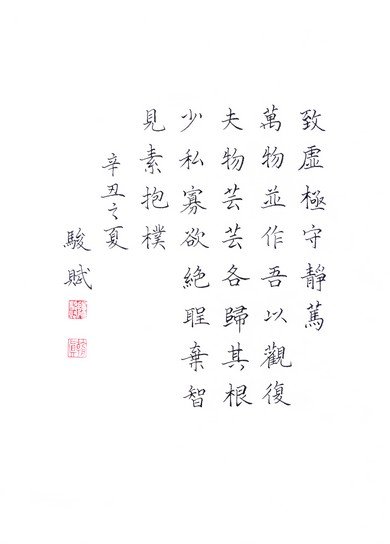 致虛極守靜篤
萬物並作吾以觀復
夫物芸芸各歸其根
少私寡欲絕聖棄智
見素抱樸
辛丑之夏
駿賦